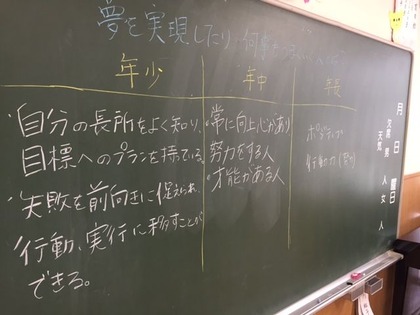 夢を実現したり・何事か
年少
・自分の長所をよく知り、
目標へのプランを持っている。
・失敗を前向きに促えられ、
行動、実行に移すことが
できる。
年中
・常に向上心があり
努力をする人
・才能がある人
年長
ポジティブ
行動力
月
日
曜日
欠席
天気
人
女
人